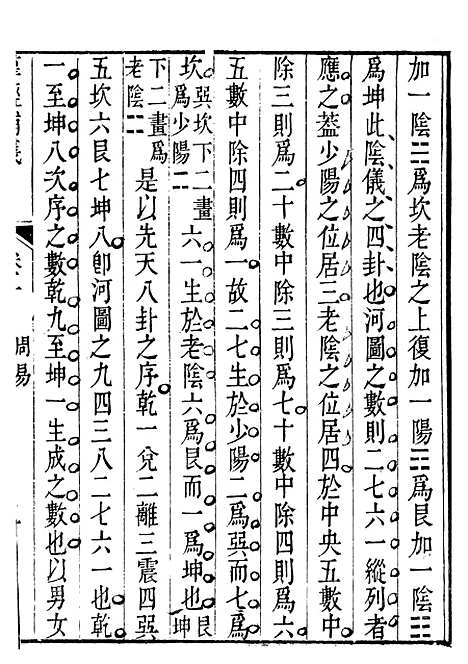 加一陰☵爲坎老陰之上復加一陽☶爲艮加一陰☷
爲坤此陰儀之四卦也河圖之數則二七六一縱列者
應之蓋少陽之位居三老陰之位居四於中央五數中
除三則爲二十數中除三則爲七十數中除四則爲六
五數中除四則爲一故二七生於少陽二爲巽而七爲
坎巽坎下二畫爲少陽⚎六一生於老陰六爲艮而一爲坤也艮坤
下二畫爲老陰⚏是以先天八卦之序乾一兌二離三震四巽
五坎六艮七坤八卽河圖之九四三八二七六一也乾
一至坤八次序之數乾九至坤一生成之數也以男女
周易